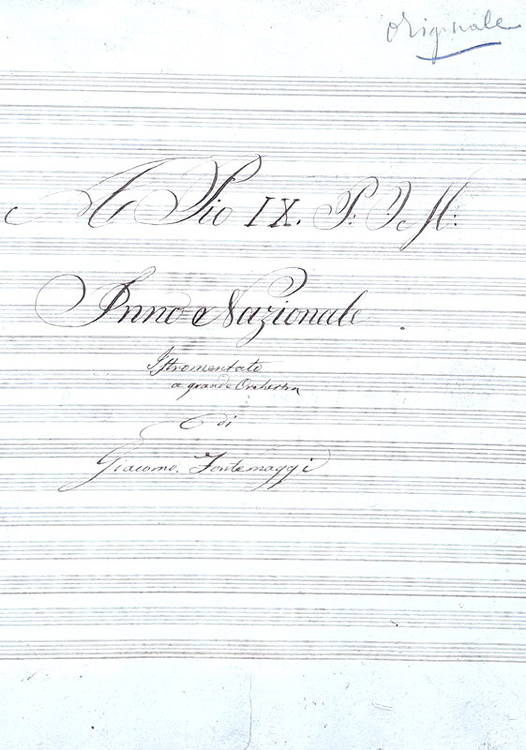 originale
A Pio IX. P. O. M:
Inno Nazionale.
Istromentato
a grande Orchestra
di
Giacomo. Fontemaggi